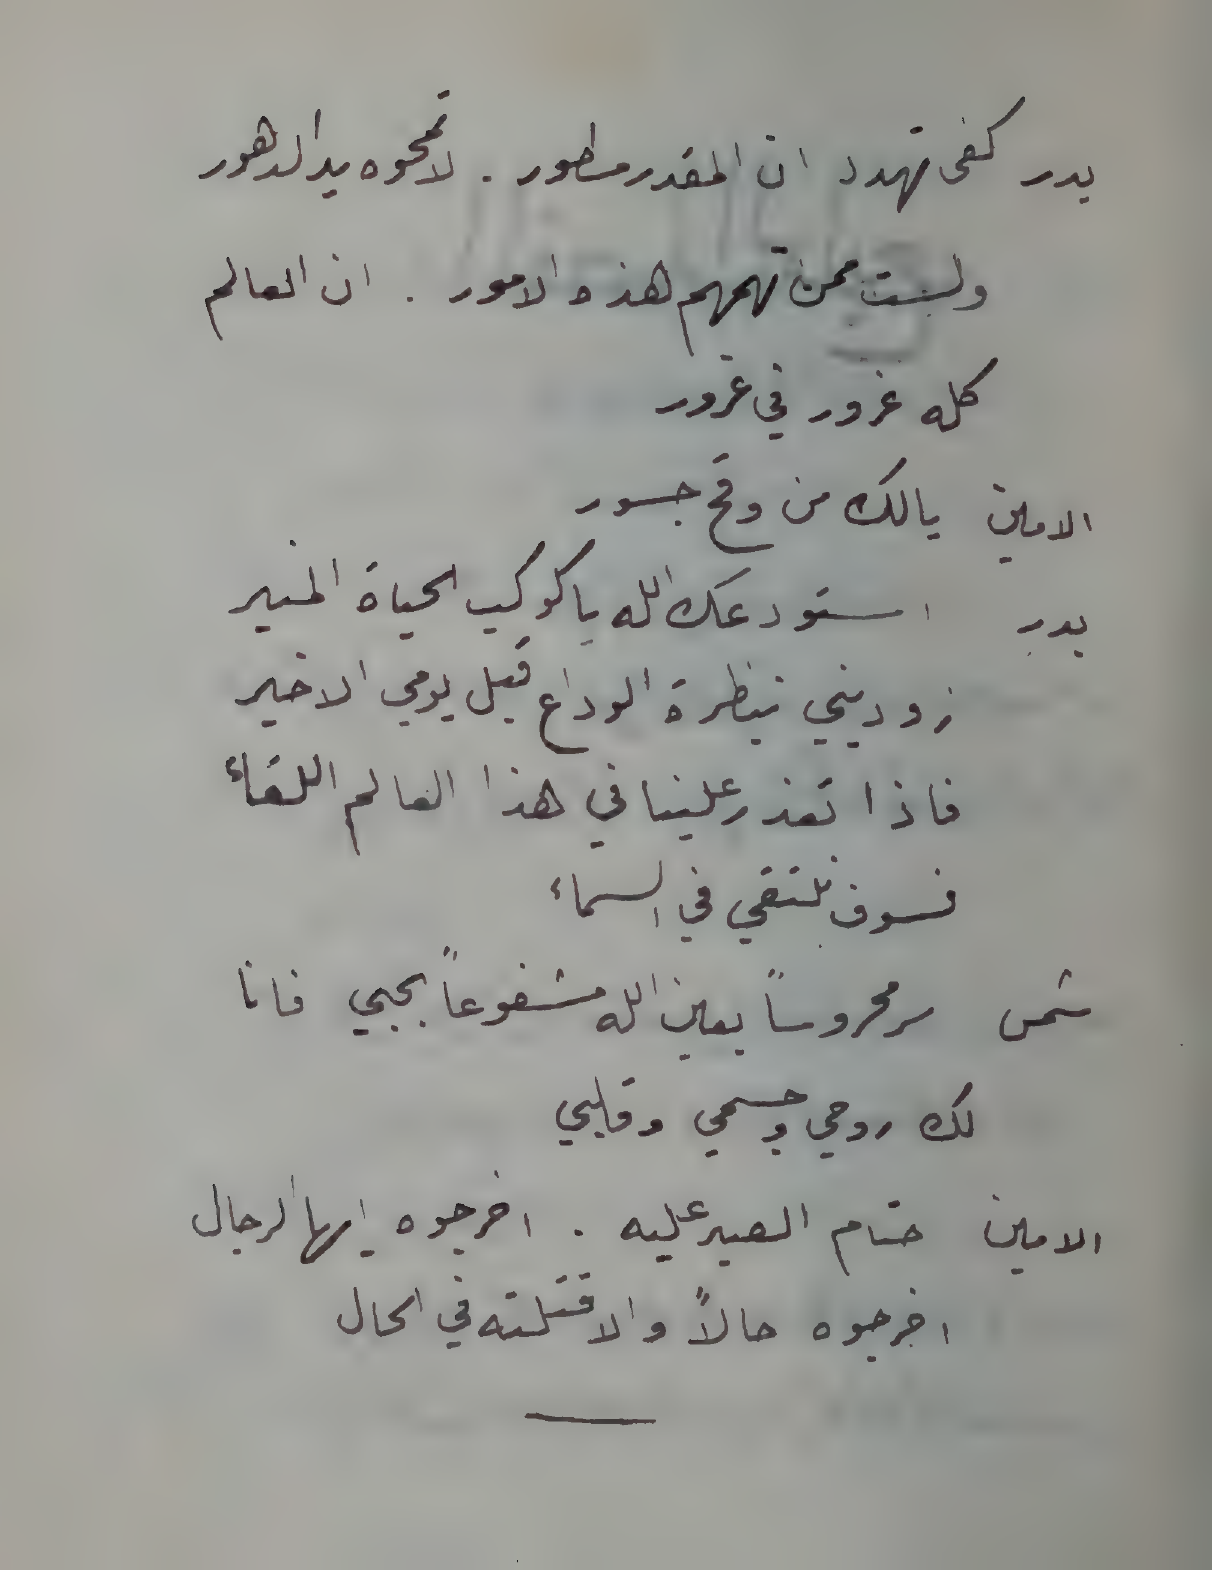 بدر كفى تهدد ان المقدر مسطور . لا تمحوه يد الدهور
ولست ممن تهمهم هذه الامور . ان العالم
كله غرور في غرور
الامين يالك من وقح جسور
بدر استودعك الله يا كوكب الحياة المنير
زوديني بنظرة الوداع قبل يومي الاخير
فاذا تعذر علينا في هذا العالم اللقاء
فسوف نلتقي في السماء
شمس سر محروساً بعين الله مشفوعاً بحبي فانا
لك روحي وجسمي وقلبي
الامين ختام الصبر عليه . اخرجوه ايها الرجال
اخرجوه حالاً والا قتلته في الحال